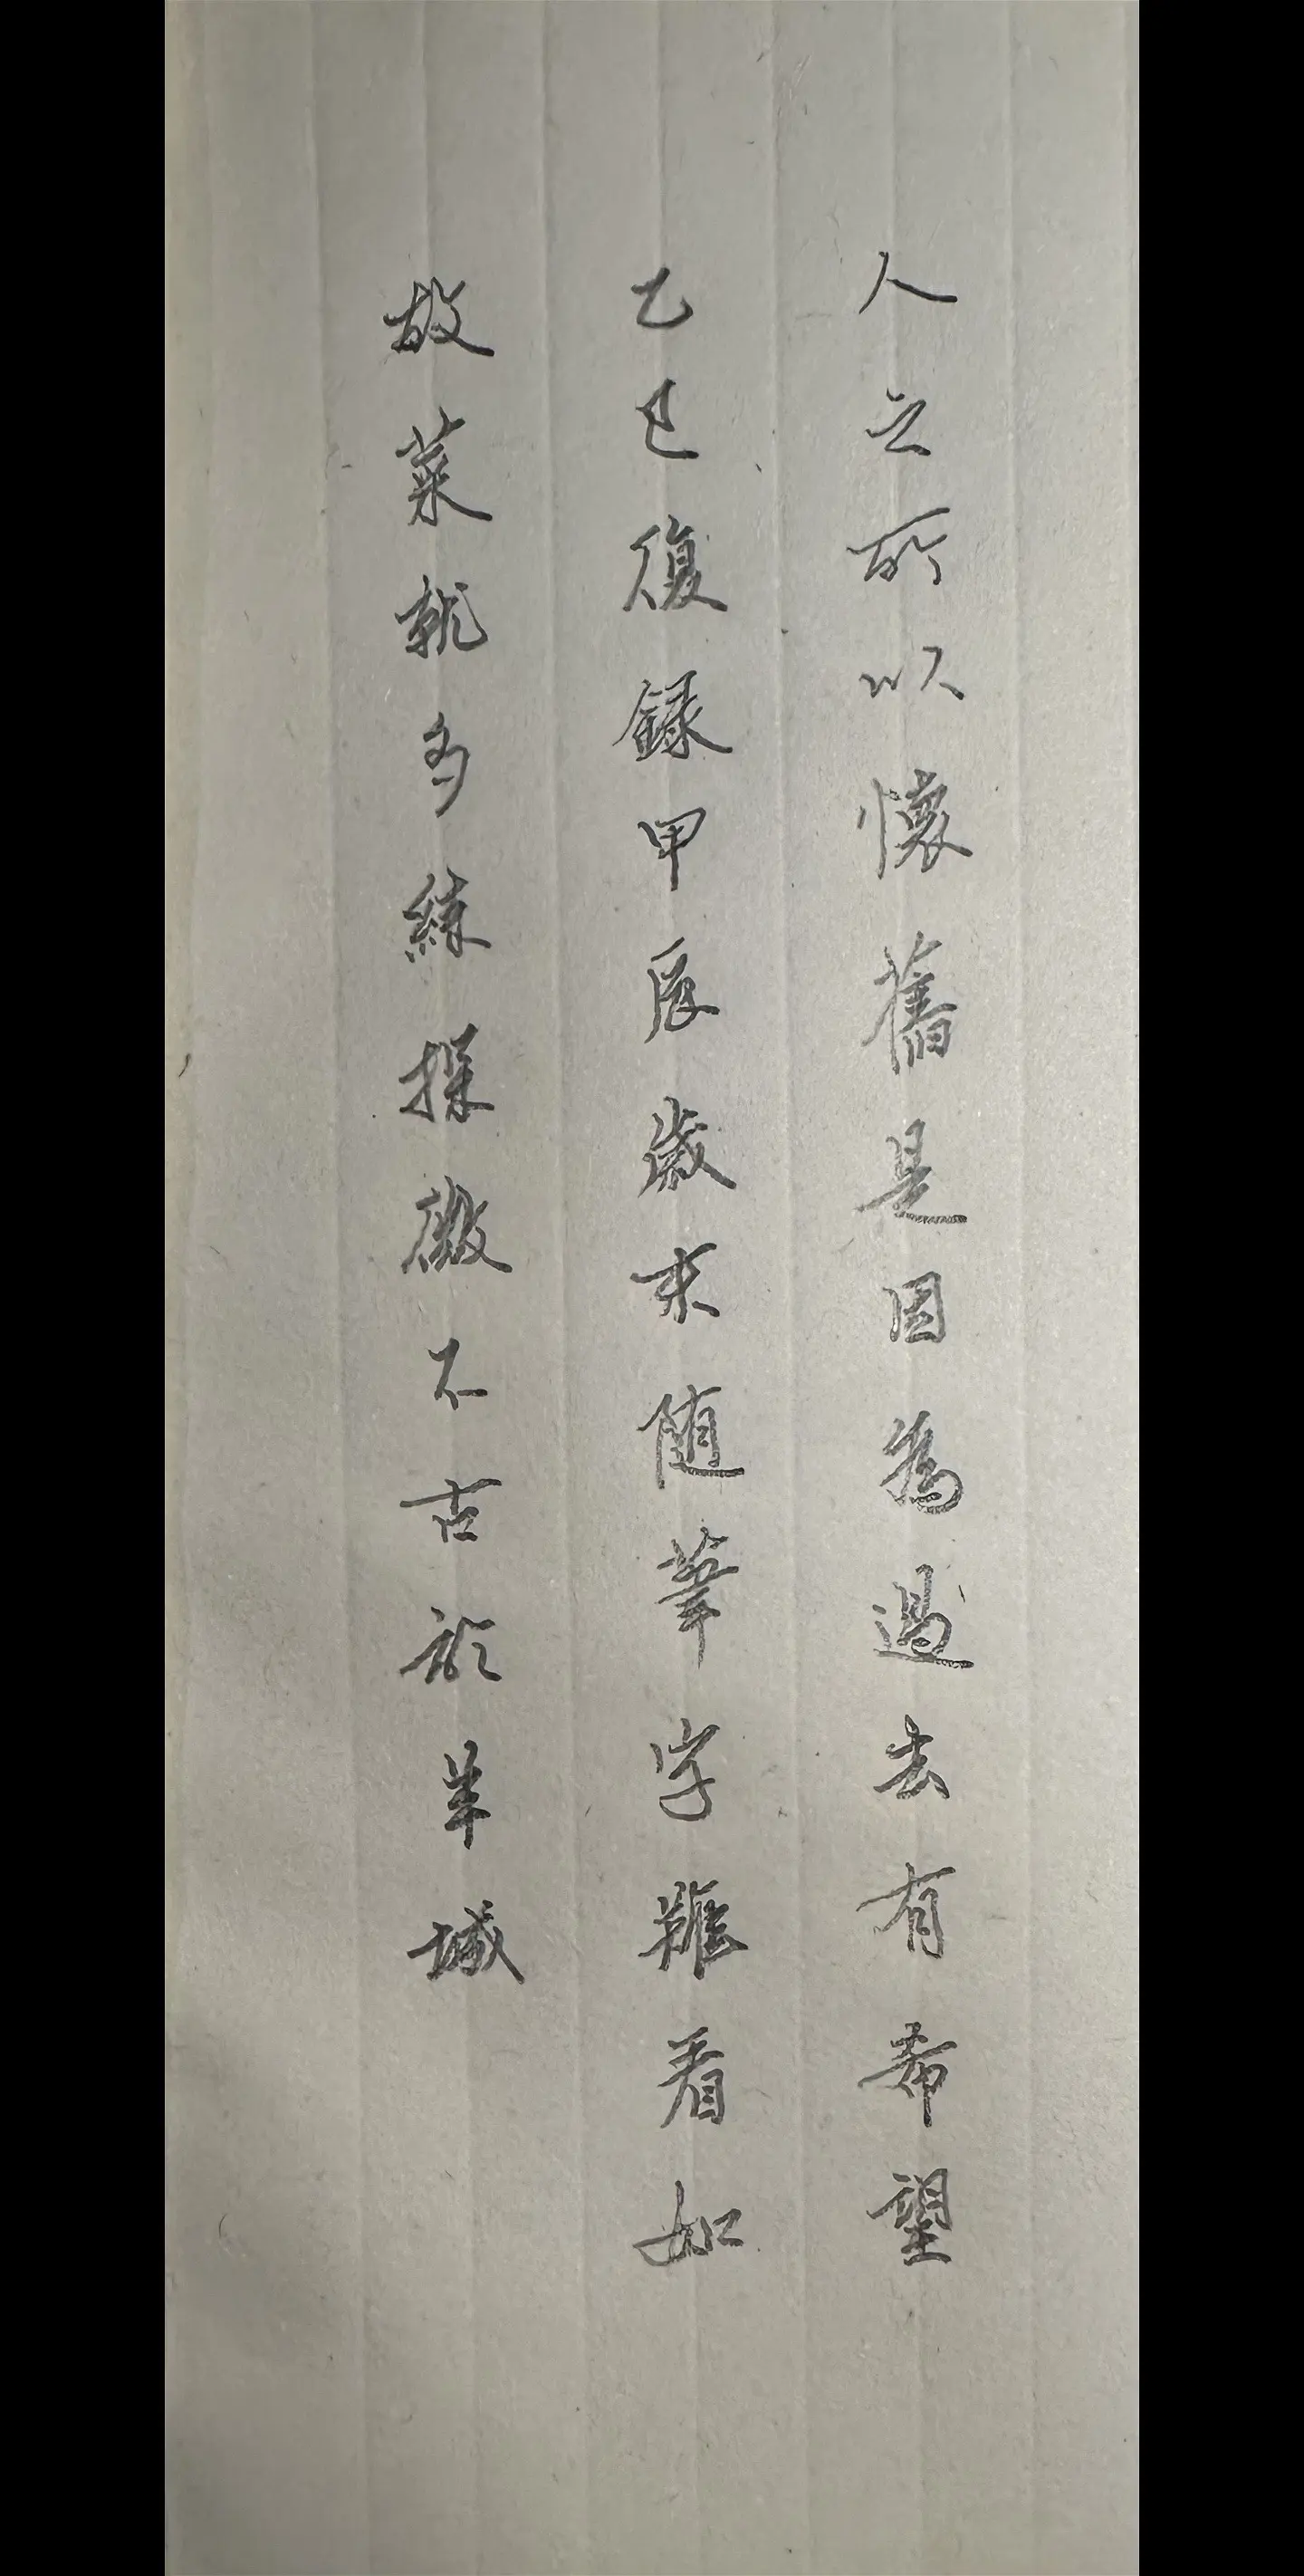 人之所以懷舊是因為過去有希望
乙巳復録甲辰歲末随筆字難看如
故菜就多練探微不古於羊城